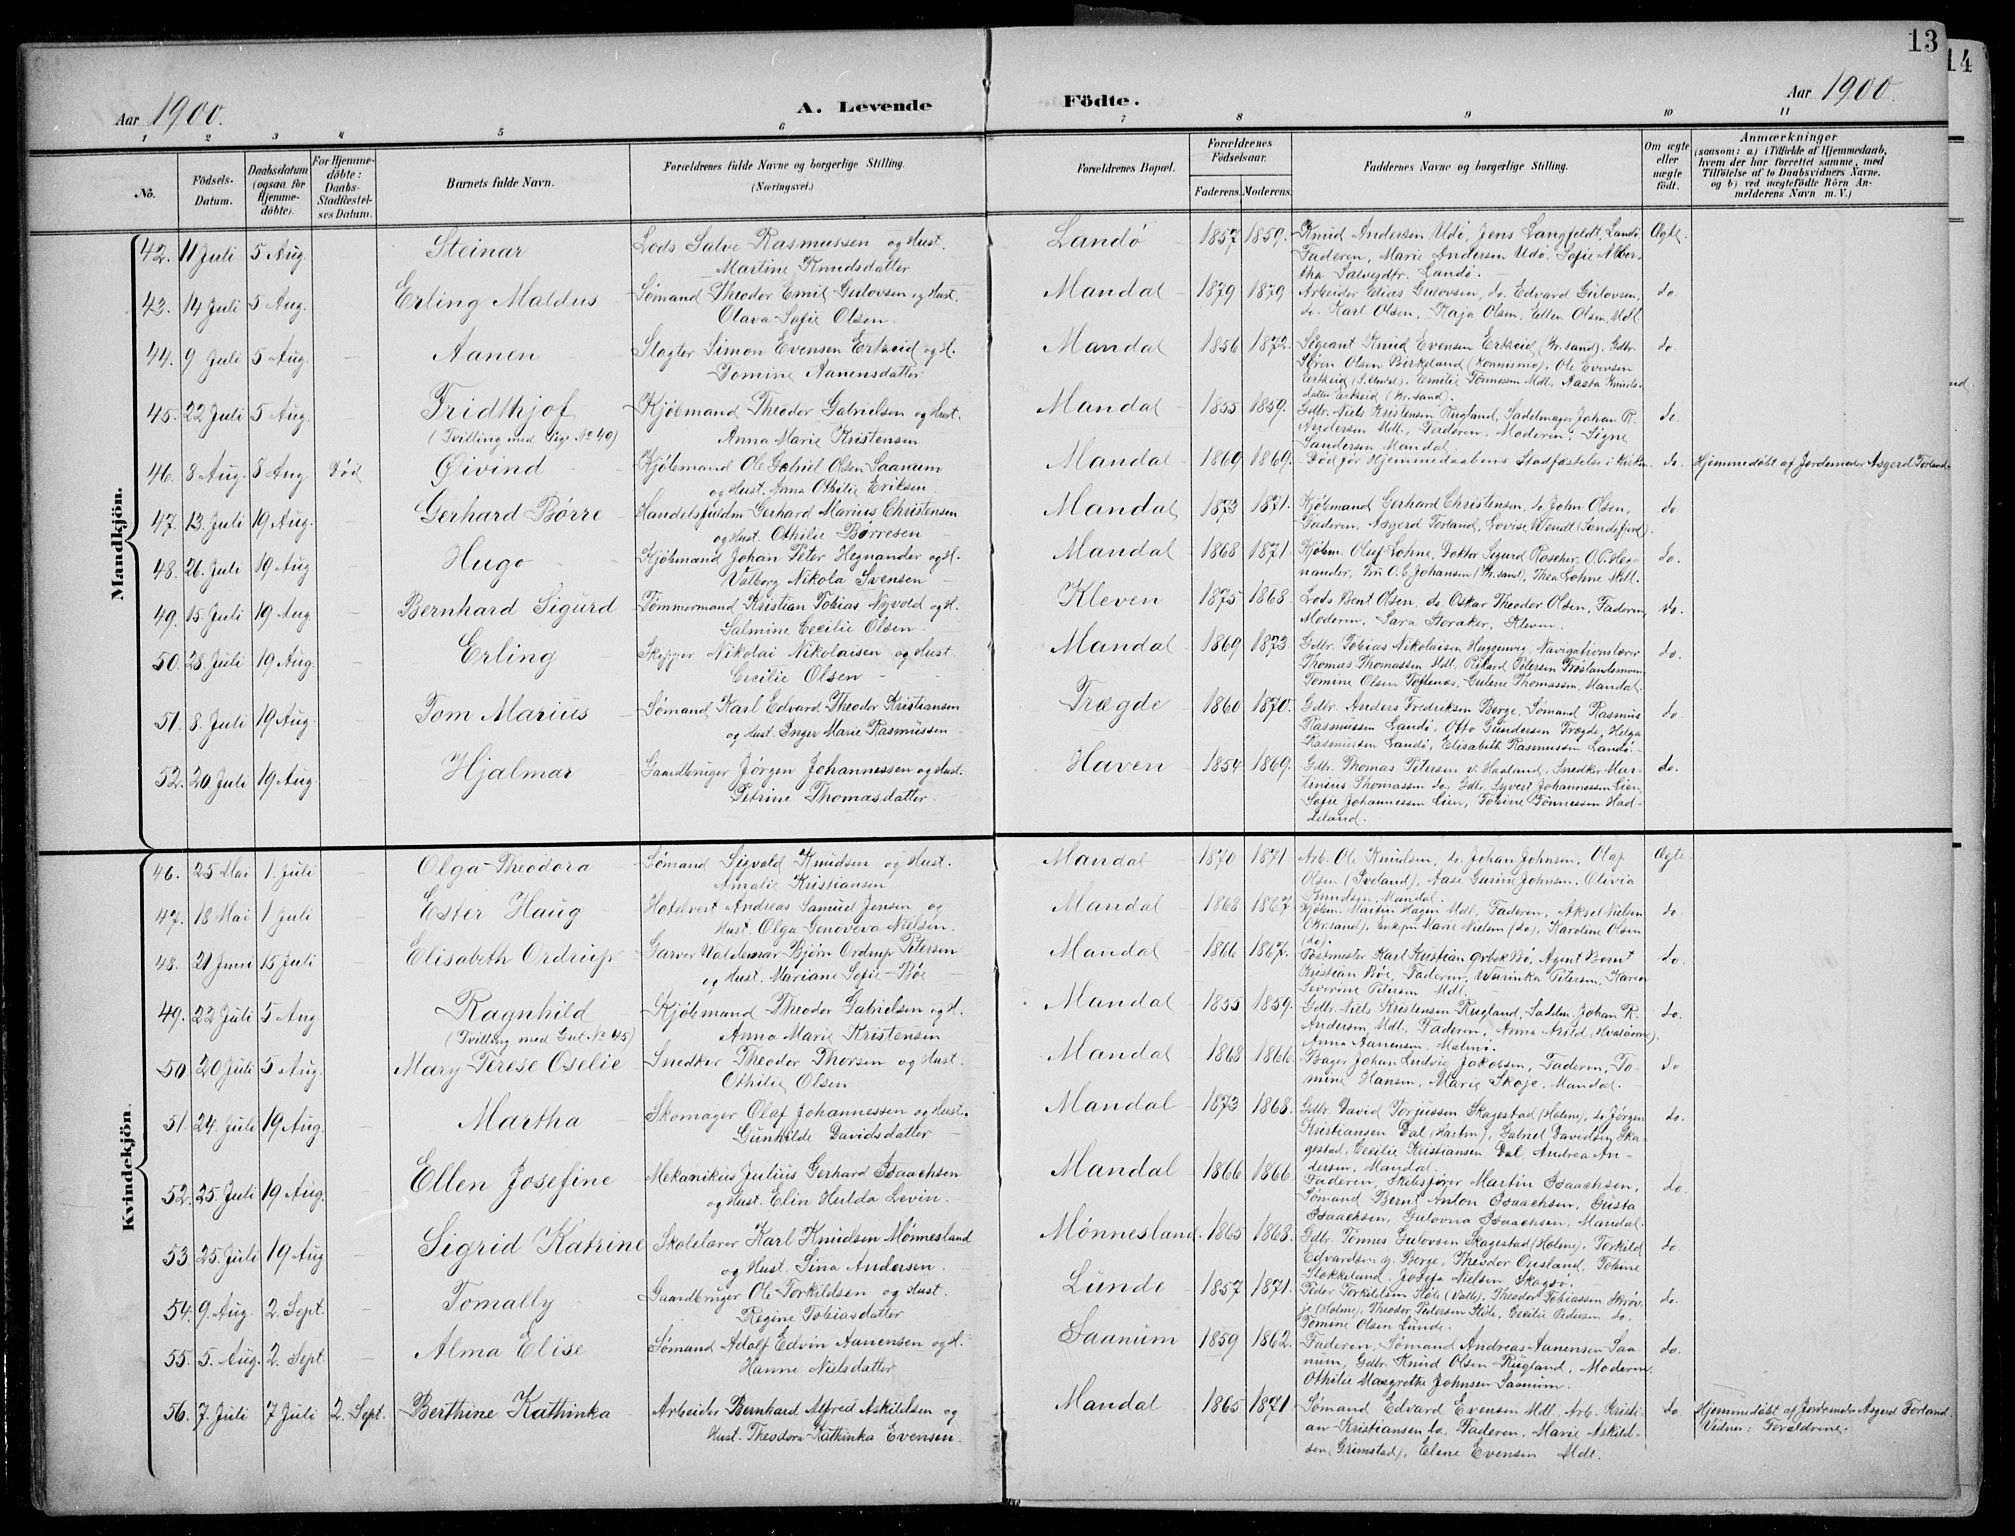 13
14
Aar 1900.
A. Levende
Födte.
Aar 1900.
1 2 3 4 5 6 7 8 9 10 11
No.
Födsels-Datum.
Daabsdatum (ogsaa for Hjemmedöbte).
For Hjemmedöbte: Daabs-Stadfæstelses Datum.
Barnets fulde Navn.
Forældrenes fulde Navne og borgerlige Stilling.
(Næringsvei.)
Forældrenes Bopæl.
Forældrenes Födselsaar.
Faderens. Moderens.
Faddernes Navne og borgerlige Stilling.
Om ægte eller uægte födt.
Anmærkninger
(saasom: a) i Tilfælde af Hjemmedaab,
hvem der har forrettet samme, med
Tilföielse af to Daabsvidners Navne,
og b) ved uægtefödte Börn Anmelderens Navn m. V.)
Mandkjön.
42. 11 Juli 5 Aug. Steinar Lods Salve Rasmussen og Hust. Landø 1857 1859. Knud Andersen Udø, Jens Langfeldt, Landø, Ægte.
Martine Knudsdatter Faderen, Marie Andersen Udø, Sofie Alber-
tha Salvesdtr. Landø.
43. 14 Juli 5 Aug. Erling Maldus Sømand Theodor Emil Gulovsen og Hust. Mandal 1879 1879 Arbeider Elias Gulovsen, do. Edvard Gulovsen, do.
Olava Sofie Olsen. do. Karl Olsen, Kaja Olsen, Ellen Olsen, Mdl.
44. 9 Juli 5 Aug. Aanen Slagter Simon Evensen Erkeid og H. Mandal 1856 1872. Knud Evensen Erkeid (Kr.sand). Gdbr. do.
Tomine Aanensdatter Søren Olsen Birkeland, Ole Evensen
Erkeid, Emilie Tønnesen Mdl. Aasta Knuds-
datter Erkeid (Kr.sand).
45. 22 Juli 5 Aug. Fridthjof Kjøbmand Theodor Gabrielsen og Hust. Mandal 1855 1859. Gdbr. Niels Kristensen Rugland, Sadelmager Johan R. do.
(Tvilling med Pige No 49) Anna Marie Kristensen Andersen Mdl. Faderen, Moderen, Signe
Sandersen Mandal.
46. 8 Aug. 8 Aug. Død Øivind Kjøbmand Ole Gabriel Olsen Saanum Mandal 1869 1869. Død før Hjemmedaabens Stadfæstelse i Kirken. do. Hjemmedøbt af Jordemoder Asgerd Forland.
og Hust. Anna Othilie Eriksen
47. 13. Juli 19 Aug. Gerhard Børre Handelsfuldm. Gerhard Marius Christensen Mandal 1873 1871. Kjøbmand Gerhard Christensen, do. John Olsen, do
og Hust. Othilie Børresen Faderen, Asgerd Forland, Lovise Wendt (Sandefjord).
48. 26. Juli 19 Aug Hugo Kjøbmand Johan Peter Hegnander og H. Mandal 1868 1871. Kjøbm. Oluf Lohne, Doktor Sigurd Roscher, O.C. Heg- do.
Valborg Nikola Svensen nander, Fru O.C. Johansen (Kr.sand), Thea Lohne Mdl.
49. 15. Juli 19 Aug. Bernhard Sigurd Tømmermand Kristian Tobias Nyvold og H. Kleven 1875 1868. Lods Bent Olsen, do. Oskar Theodor Olsen, Faderen, do.
Salmine Cecilie Olsen Moderen, Sara Storaker, Kleven.
50. 28. Juli 19 Aug. Erling Skipper Nikolai Nikolaisen og Hust. Mandal 1869 1873. Gdbr. Tobias Nikolaisen Haggenvig, Navigationslærer do.
Cecilie Olsen Thomas Thomassen Mdl. Rikard Petersen Frøslandsmoen,
Tomine Olsen Toftenæs, Gulene Thomassen, Mandal.
51. 8. Juli 19 Aug. Tom Marius Sømand Karl Edvard Theodor Kristiansen Trægde 1860 1870. Gdbr. Anders Fredriksen Berge, Sømand Rasmus do.
og Hust. Inger Marie Rasmussen Rasmussen Landø, Otto Gundersen Trægde, Helga
Rasmussen Landø, Elisabeth Rasmussen Landø.
52. 20 Juli 19 Aug. Hjalmar Gaardbruger Jørgen Johannessen og Hust. Haven 1854 1869. Gdbr. Thomas Petersen v. Haaland, Snedker Mar- do.
Petrine Thomasdatter tinius Thomassen do, Gdbr. Syvert Johannessen Lien,
Sofie Johannessen Lien, Tobine Tønnessen Had-
deland.
Kvindekjön.
46. 25 Mai 1. Juli Olga Theodora Sømand Sigvald Knudsen og Hust. Mandal 1870 1871. Arb. Ole Knudsen, do. Johan Johnsen, Olaf Ægte
Amalie Kristiansen Olsen (Iveland), Aase Gurine Johnsen. Olivia
Knudsen, Mandal.
47. 18 Mai 1 Juli Ester Haug Hotelvert Andreas Samuel Jensen og Mandal 1868 1867. Kjøbm. Martin Hagen Mdl. Faderen, Aksel Nielsen do.
Hust. Olga Genoveva Nielsen. (Kr.sand), Marie Nielsen (do), Karoline Olsen
(do).
48. 21 Juni 15 Juli Elisabeth Ordrup Garver Valdemar Bjørn Ordrup Petersen Mandal 1866 1867. Postmester Karl Kristian Bø, Agent Bernt do.
og Hust. Mariane Sofie Bøe Kristian Bøe, Faderen, Warinka Petersen, Karen
Severine Petersen Mdl.
49. 22 Juli 5 Aug Ragnhild Kjøbmand Theodor Gabrielsen og H. Mandal 1855 1859. Gdbr. Niels Kristensen Rugland, Sadelm. Johan R. do.
(Tvilling med Gut No 45) Anna Marie Kristensen Andersen Mdl. Faderen, Anna
Anna Aanensen, Malmø.
50. 20 Juli 5 Aug. Mary Terese Oselie Snedker Theodor Thorsen og Hust. Mandal 1868 1866. Bager Johan Ludvig Jakobsen, Faderen, To- do
Othilie Olsen mine Hansen, Marie Skoje, Mandal.
51. 24. Juli 19 Aug. Martha Skomager Olaf Johannessen og Hust. Mandal 1873 1868. Gdbr. David Torjussen Skagestad (Holme), do. Jørgen do.
Gunhilde Davidsdatter Kristiansen Dal (Hartm), Gabriel Davidsen Ska-
gestad, Cecilie Kristiansen Dal, Andrea An-
dersen, Mandal.
52. 25. Juli 19 Aug. Ellen Josefine Mekanikus Julius Gerhard Isaachsen Mandal 1866 1866. Faderen, Skibsfører Martin Isaachsen, do.
og Hust. Elin Hulda Levin. Sømand Bernt Anton Isaachsen, Gusta
Isaachsen, Gulovna Isaachsen, Mandal.
53. 25. Juli 19 Aug Sigrid Katrine Skolelærer Karl Knudsen Mønnesland Mønnesland. 1865 1868. Gdbr. Tønnes Gulovsen Skagestad (Holme), Torkild do.
og Hust. Sina Andersen. Edvardsen y. Berge, Theodor Orisland, Tobine
Stokkeland, Josefa Nielsen Skogsø.
54. 9. Aug. 2. Sept. Tomally Gaardbruger Ole Torkildsen og Hust. Lunde 1857 1871. Peder Torkildsen (Valle), Theodor Tobiassen do.
Regine Tobiasdatter (Holme), Theodor Pedersen, Cecilie Pedersen do.
Tomine Olsen Lunde.
55. 5. Aug. 2. Sept. Alma Elise Sømand Adolf Edvin Aanensen og H. Saanum 1859 1862. Faderen, Sømand Andreas Aanensen Saa- do.
Hanne Nielsdatter num, Gdbr. Knud Olsen Rugland, Moderen,
Othilie Margrethe Johnsen Saanum.
56. 7. Juli 7 Juli 2. Sept. Berthine Kathinka Arbeider Bernhard Alfred Askildsen og Mandal 1865 1871. Sømand Edvard Evensen Mdl. Arb. Kristi- do. Hjemmedøbt af Jordemoder Asgerd Forland.
Hust. Theodora Kathinka Evensen. an Kristiansen do. Faderen, Marie Askild- Vidner: Forældrene.
sen (Grimstad), Elene Evensen Mdl.